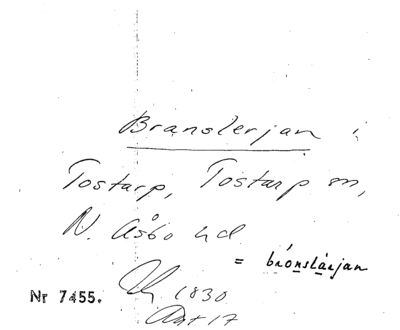 Branslerjan i
Tostarp, Tostarp m,
N. Åsbo hd
= brónslárjan
Nr 7455. 1830